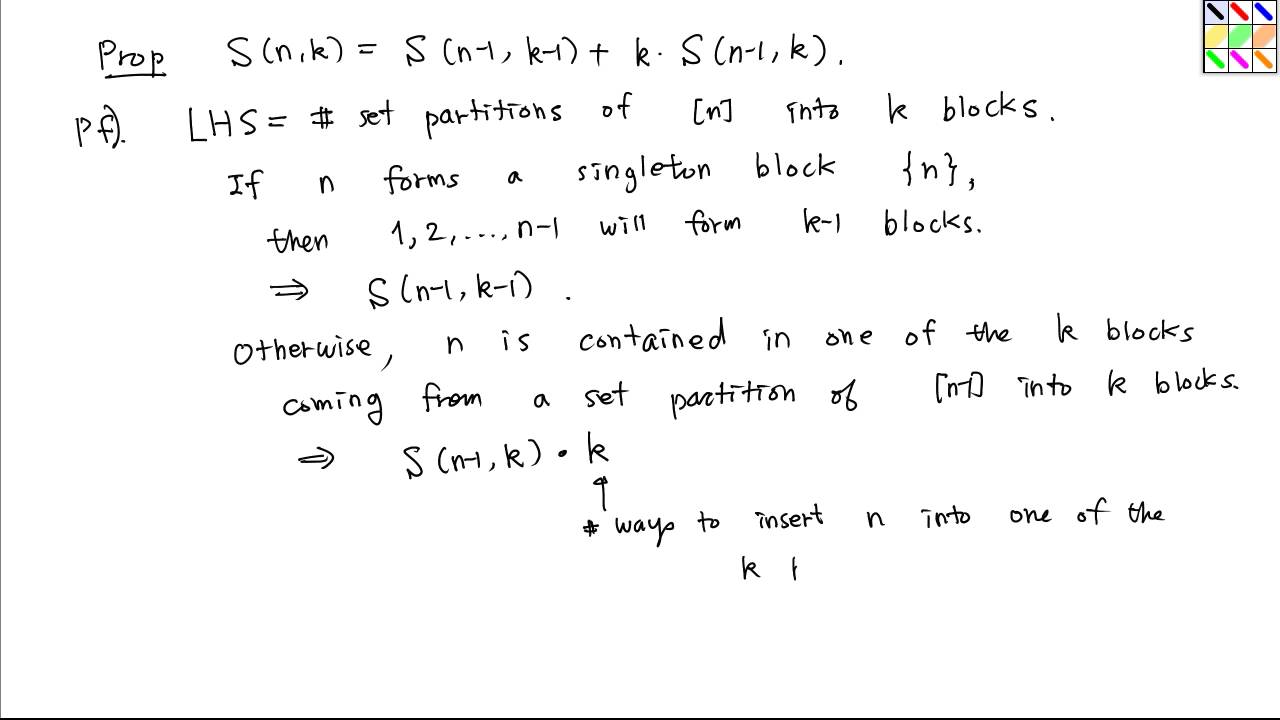 Prop S(n,k) = S(n-1, k-1) + k · S(n-1, k).
Pf). LHS = # set partitions of [n] into k blocks.
If n forms a singleton block {n},
then 1, 2, ..., n-1 will form k-1 blocks.
⇒ S(n-1, k-1) .
Otherwise, n is contained in one of the k blocks
coming from a set partition of [n-1] into k blocks.
⇒ S(n-1, k) · k
↑
# ways to insert n into one of the
k